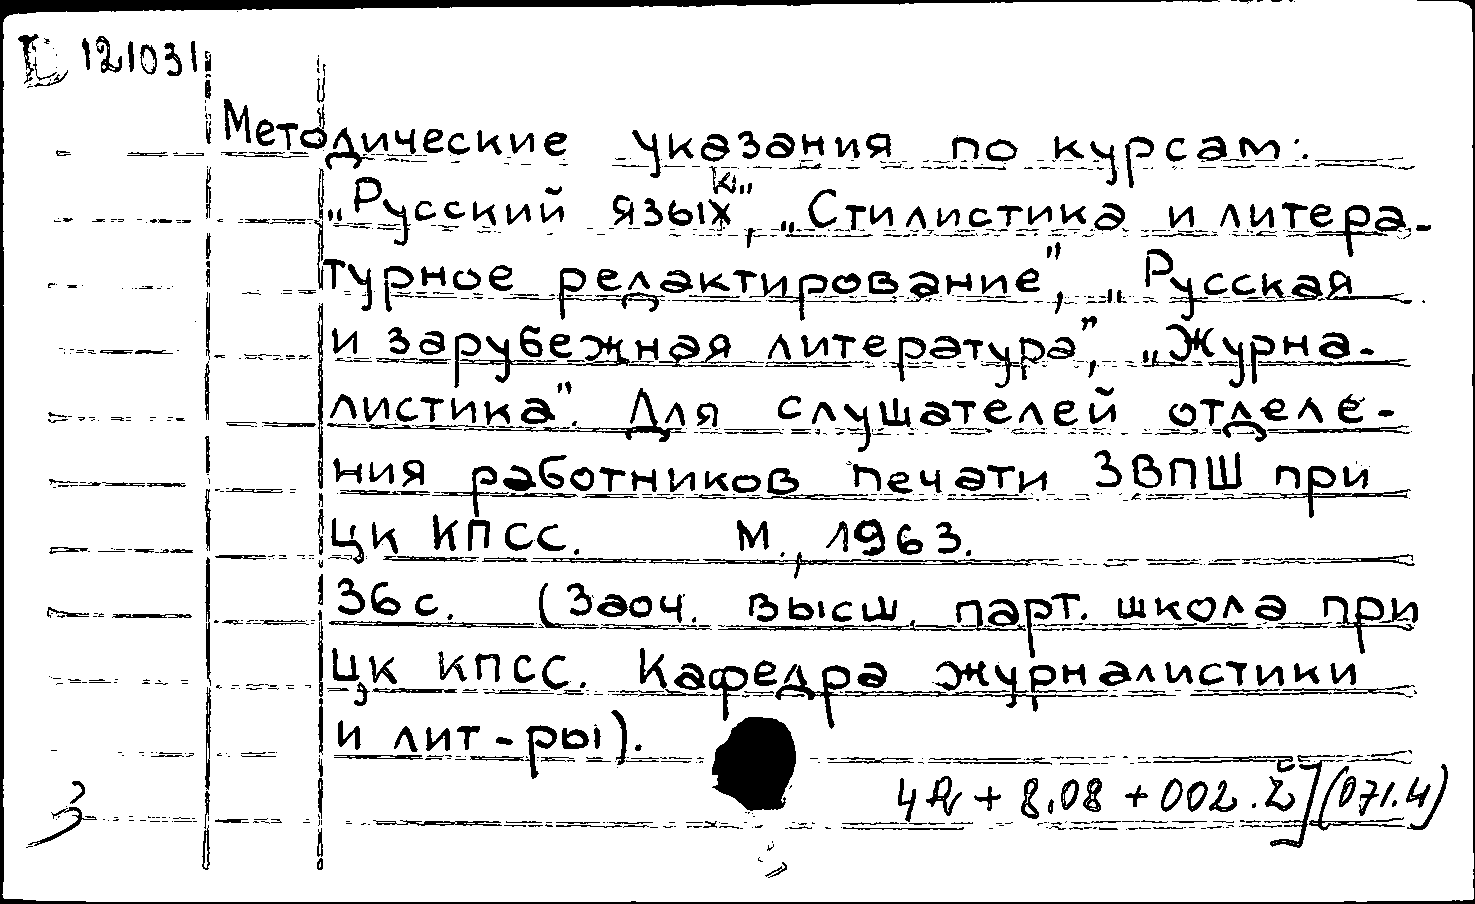 D 121031
Методические указания по курсам:
„Русский язык", „Стилистика и литера-
турное редактирование", „Русская
и зарубежная литература", „Журна-
листика". Для слушателей отделе-
ния работников печати ЗВПШ при
ЦК КПСС. М., 1963.
36 с. (Заоч. высш. парт. школа при
ЦК КПСС. Кафедра журналистики
и лит-ры).
+ 8.08 + 002. (071.4)
3